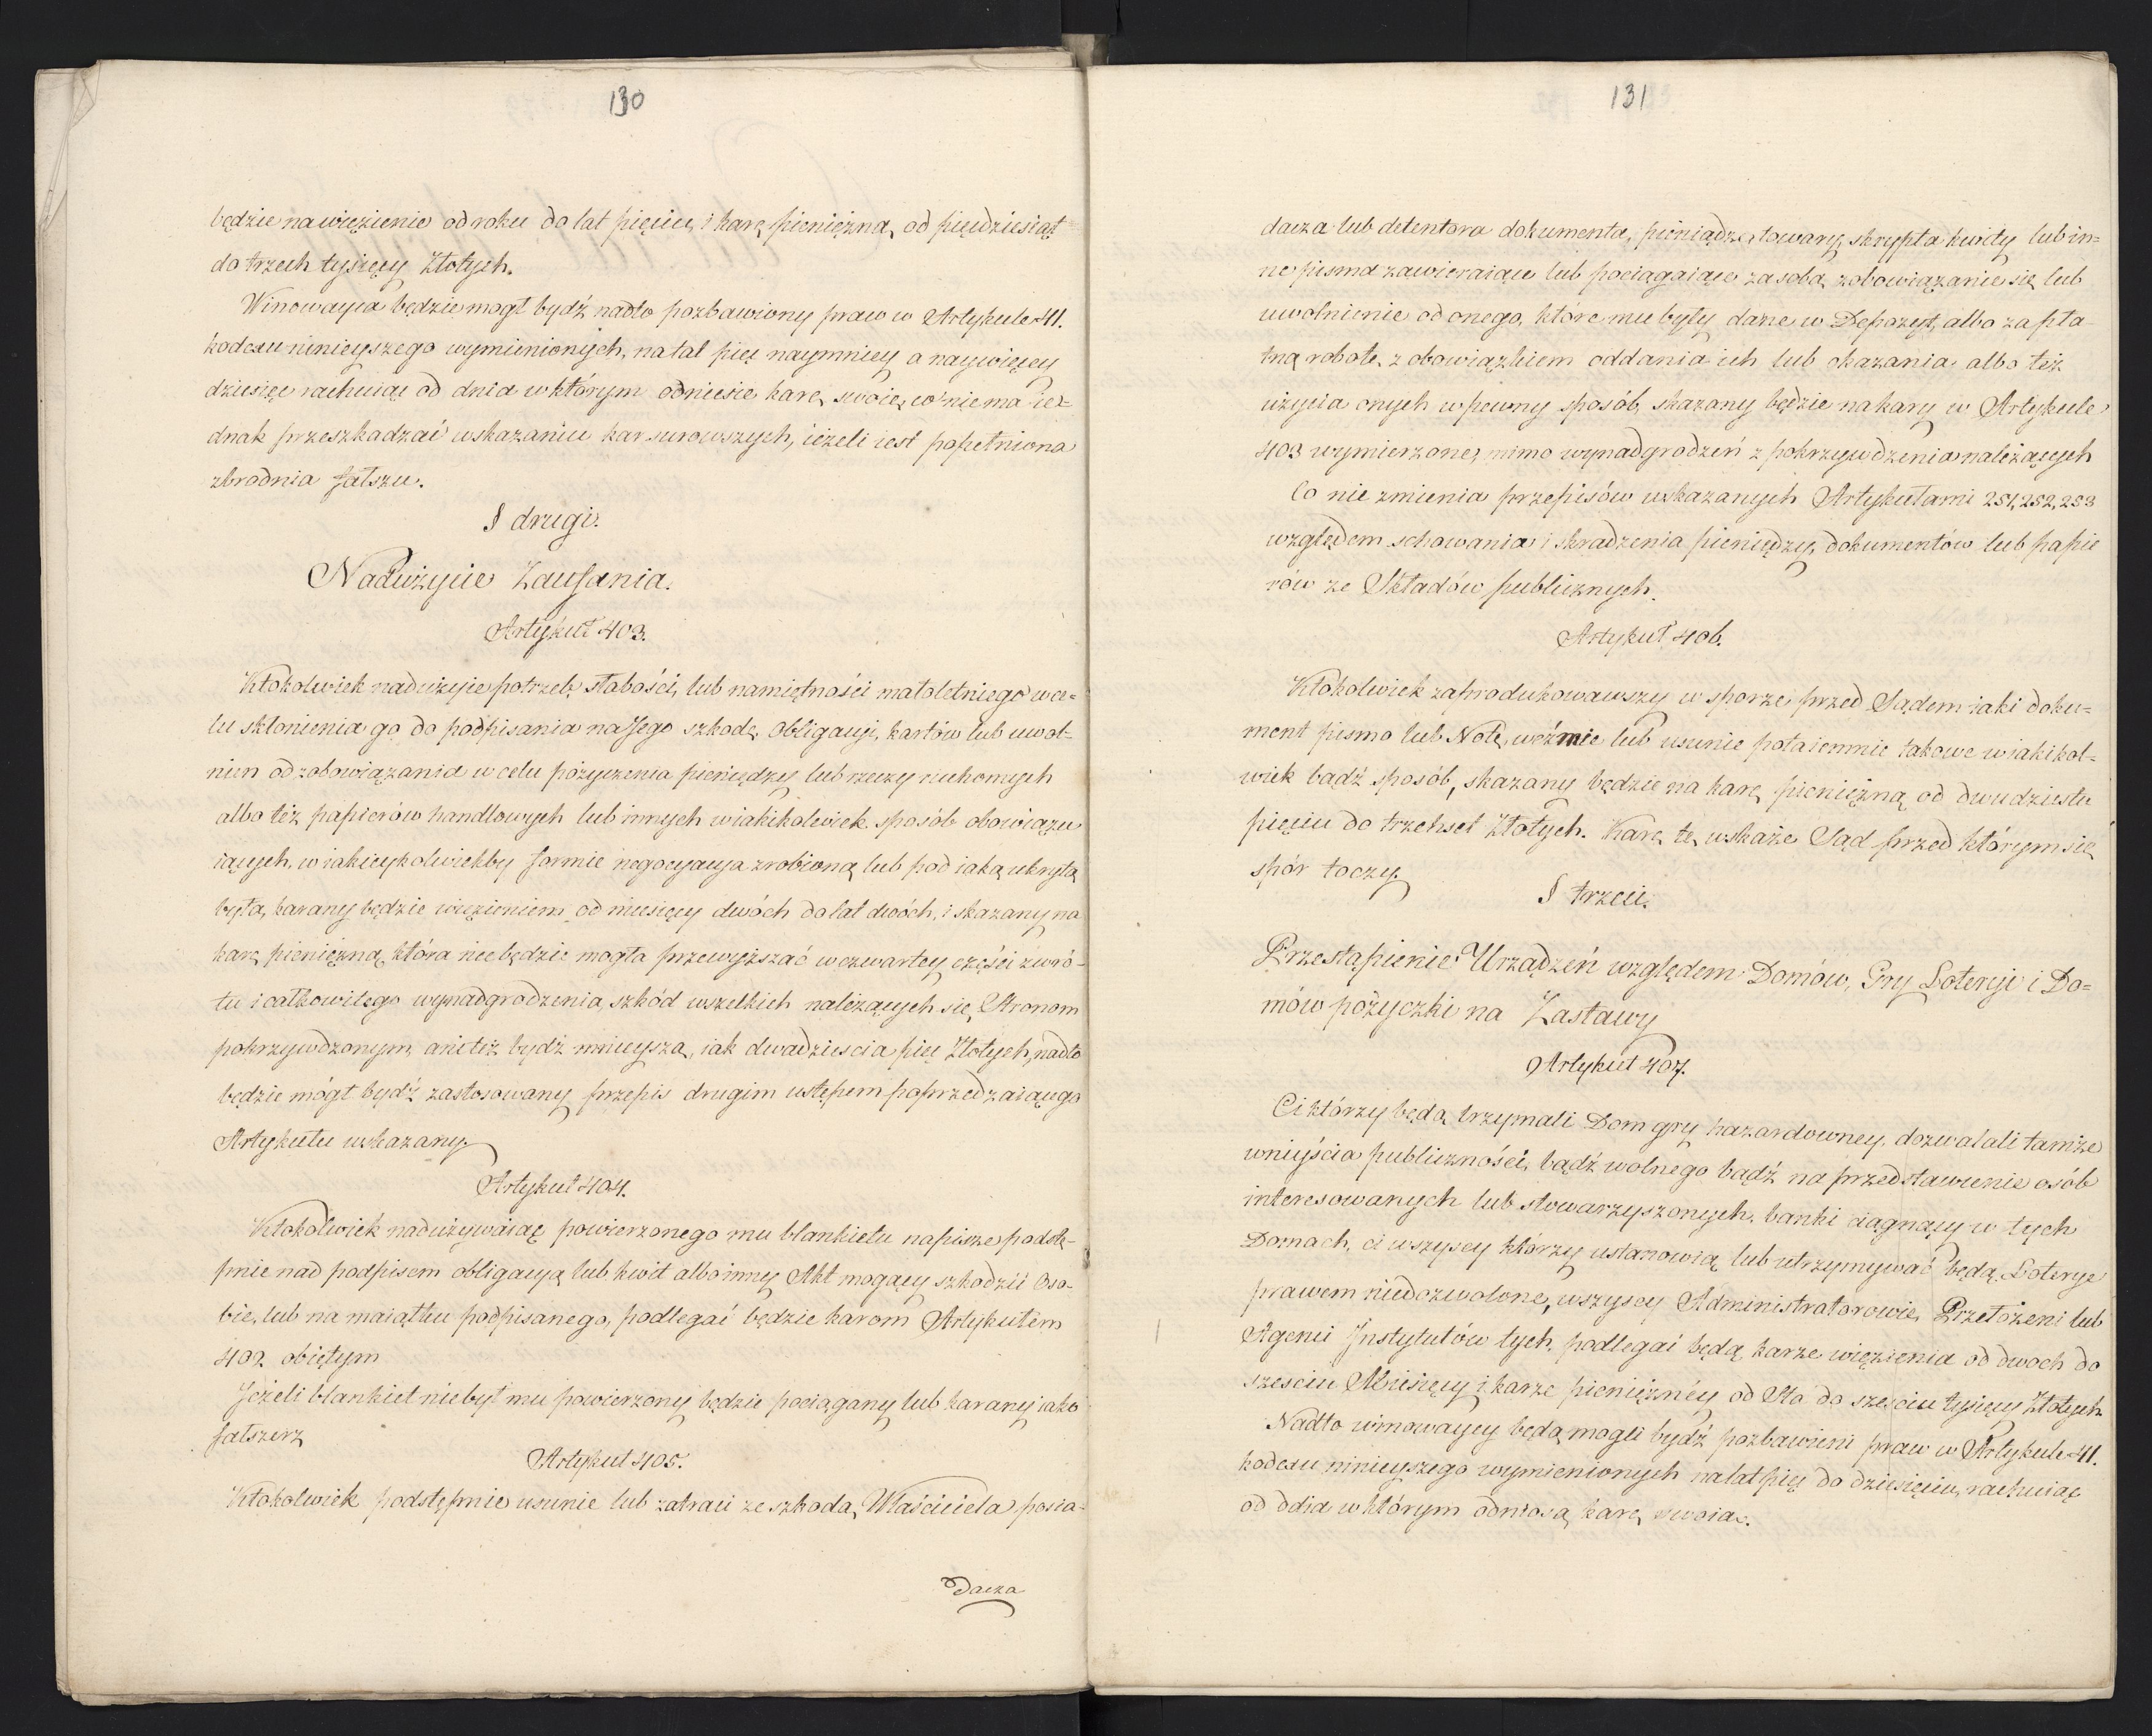 130
będzie na więzienie od roku do lat pięciu, i karę pieniężną od pięćdziesiąt
do trzech tysięcy Złotych.
Winowayca będzie mogł bydź nadto pozbawiony praw w Artykule 41.
kodexu ninieyszego wymienionych, na lat pięć naymniey a naywięcey
dziesięć rachuiąc od dnia w którym odniesie karę swoię, co nie ma ie=
dnak przeszkadzać wskazaniu kar surowszych, ieżeli iest popełniona
zbrodnia fałszu.
§ drugi.
Nadużycie Zaufania.
Artykuł 403.
Ktokolwiek nadużyie potrzeb, słabości, lub namiętności małoletniego w ce=
lu skłonienia go do podpisania na Jego szkodę Obligacyi, kartów lub uwol=
nien od zobowiązania w celu pożyczenia pieniędzy, lub rzeczy ruchomych
albo też papierów handlowych lub innych w iakikolwiek sposób obowiązu
iących, w iakieykolwiekby formie negocyacya zrobioną lub pod iaką ukrytą
była, karany będzie więzieniem od miesięcy dwóch do lat dwóch, i skazany na
karę pieniężną, która nie będzie mogła przewyższać w czwartey części zwró=
tu i całkowitego wynadgrodzenia szkód wszelkich należących się Stronom
pokrzywdzonym, ani też bydź mnieysza, iak dwadzieścia pięć Złotych, nadto
będzie mógł bydź zastosowany przepis drugim ustępem poprzedzaiącego
Artykułu wskazany.
Artykuł 404.
Ktokolwiek nadużywaiąc powierzonego mu blankietu napisze podstę=
pnie nad podpisem obligacyą lub kwit albo inny Akt mogący szkodzić Oso=
bie, lub na maiątku podpisanego, podlegać będzie karom Artykułem
402 obiętym
Jeżeli blankiet nie był mu powierzony będzie pociągany lub karany iako
fałszerz
Artykuł 405.
Ktokolwiek podstępnie usunie lub zatraci ze szkodą Właściciela posia=
dacza
131
dacza lub detentora dokumenta, pieniądze, towary, skrypta kwity lub in=
ne pisma zawieraiące lub pociągaiące za sobą zobowiązanie się lub
uwolnienie od onego, które mu były dane w Depozyt, albo za pła=
tną robotę z obowiązkiem oddania ich lub okazania albo też
użycia onych w pewny sposób, skazany będzie na kary w Artykule
403 wymierzone, mimo wynadgrodzeń z pokrzywdzenia należących
Co nie zmienia przepisów wskazanych Artykułami 251, 252, 253
względem schowania i skradzenia pieniędzy, dokumentów lub papie
rów ze Składów publicznych.
Artykuł 406.
Ktokolwiek zaprodukowawszy w sporze przed Sądem iaki doku=
ment pismo lub Notę, weźmie lub usunie potaiemnie takowe w iakikol=
wiek bądź sposób, skazany będzie na karę pieniężną od dwudziestu
pięciu do trzechset Złotych. Karę tę wskaże Sąd przed którym się
spór toczy.
§ trzeci.
Przestąpienie Urządzeń względem Domów, Gry Loteryi i Do=
mów pożyczki na Zastawy
Artykuł 407.
Ci którzy będą trzymali Dom gry hazardowney, dozwalali tamże
wniyścia publiczności, bądź wolnego bądź na przedstawienie osób
interesowanych lub stowarzyszonych, banki ciągnący w tych
Domach, ci wszyscy którzy ustanowią lub utrzymywać będą Loterye
prawem niedozwolone, wszyscy Administratorowie, Przełożeni lub
Agenci Instytutów tych, podlegać będą karze więzienia od dwoch do
sześciu Miesięcy i karze pieniężnéy od Sta do sześciu tysięcy Złotych
Nadto winowaycy będą mogli bydź pozbawieni praw w Artykule 41.
kodexu ninieyszego wymienionych na lat pięć do dziesięciu, rachuiąc
od ddia w którym odniosą karę swoią.